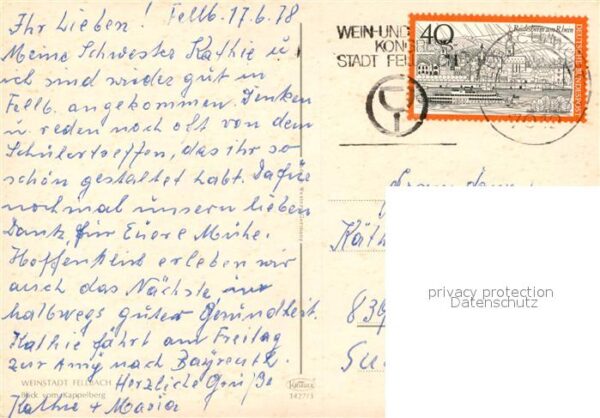 Ihr Lieben! Fellb. 17.6.78
Meine Schwester Kathie u
ich sind wieder gut in
Fellb. angekommen. Denken
u. reden noch oft von dem
Schülertreffen, das ihr so
schön gestaltet habt. Dafür
nochmal unsern lieben
Dank, für Euere Mühe.
Hoffentlich erleben wir
auch das Nächste in
halbwegs guter Gesundheit.
Kathie fährt am Freitag
zur Amy nach Bayreuth.
Herzliche Grüße
Kathie + Maria
WEINSTADT FELLBACH
Blick vom Kappelberg
1427/3
WEIN-UND
KONG
STADT FELLBACH
40
Rüdesheim am Rhein
DEUTSCHE BUNDESPOST
Käth
839
privacy protection
Datenschutz